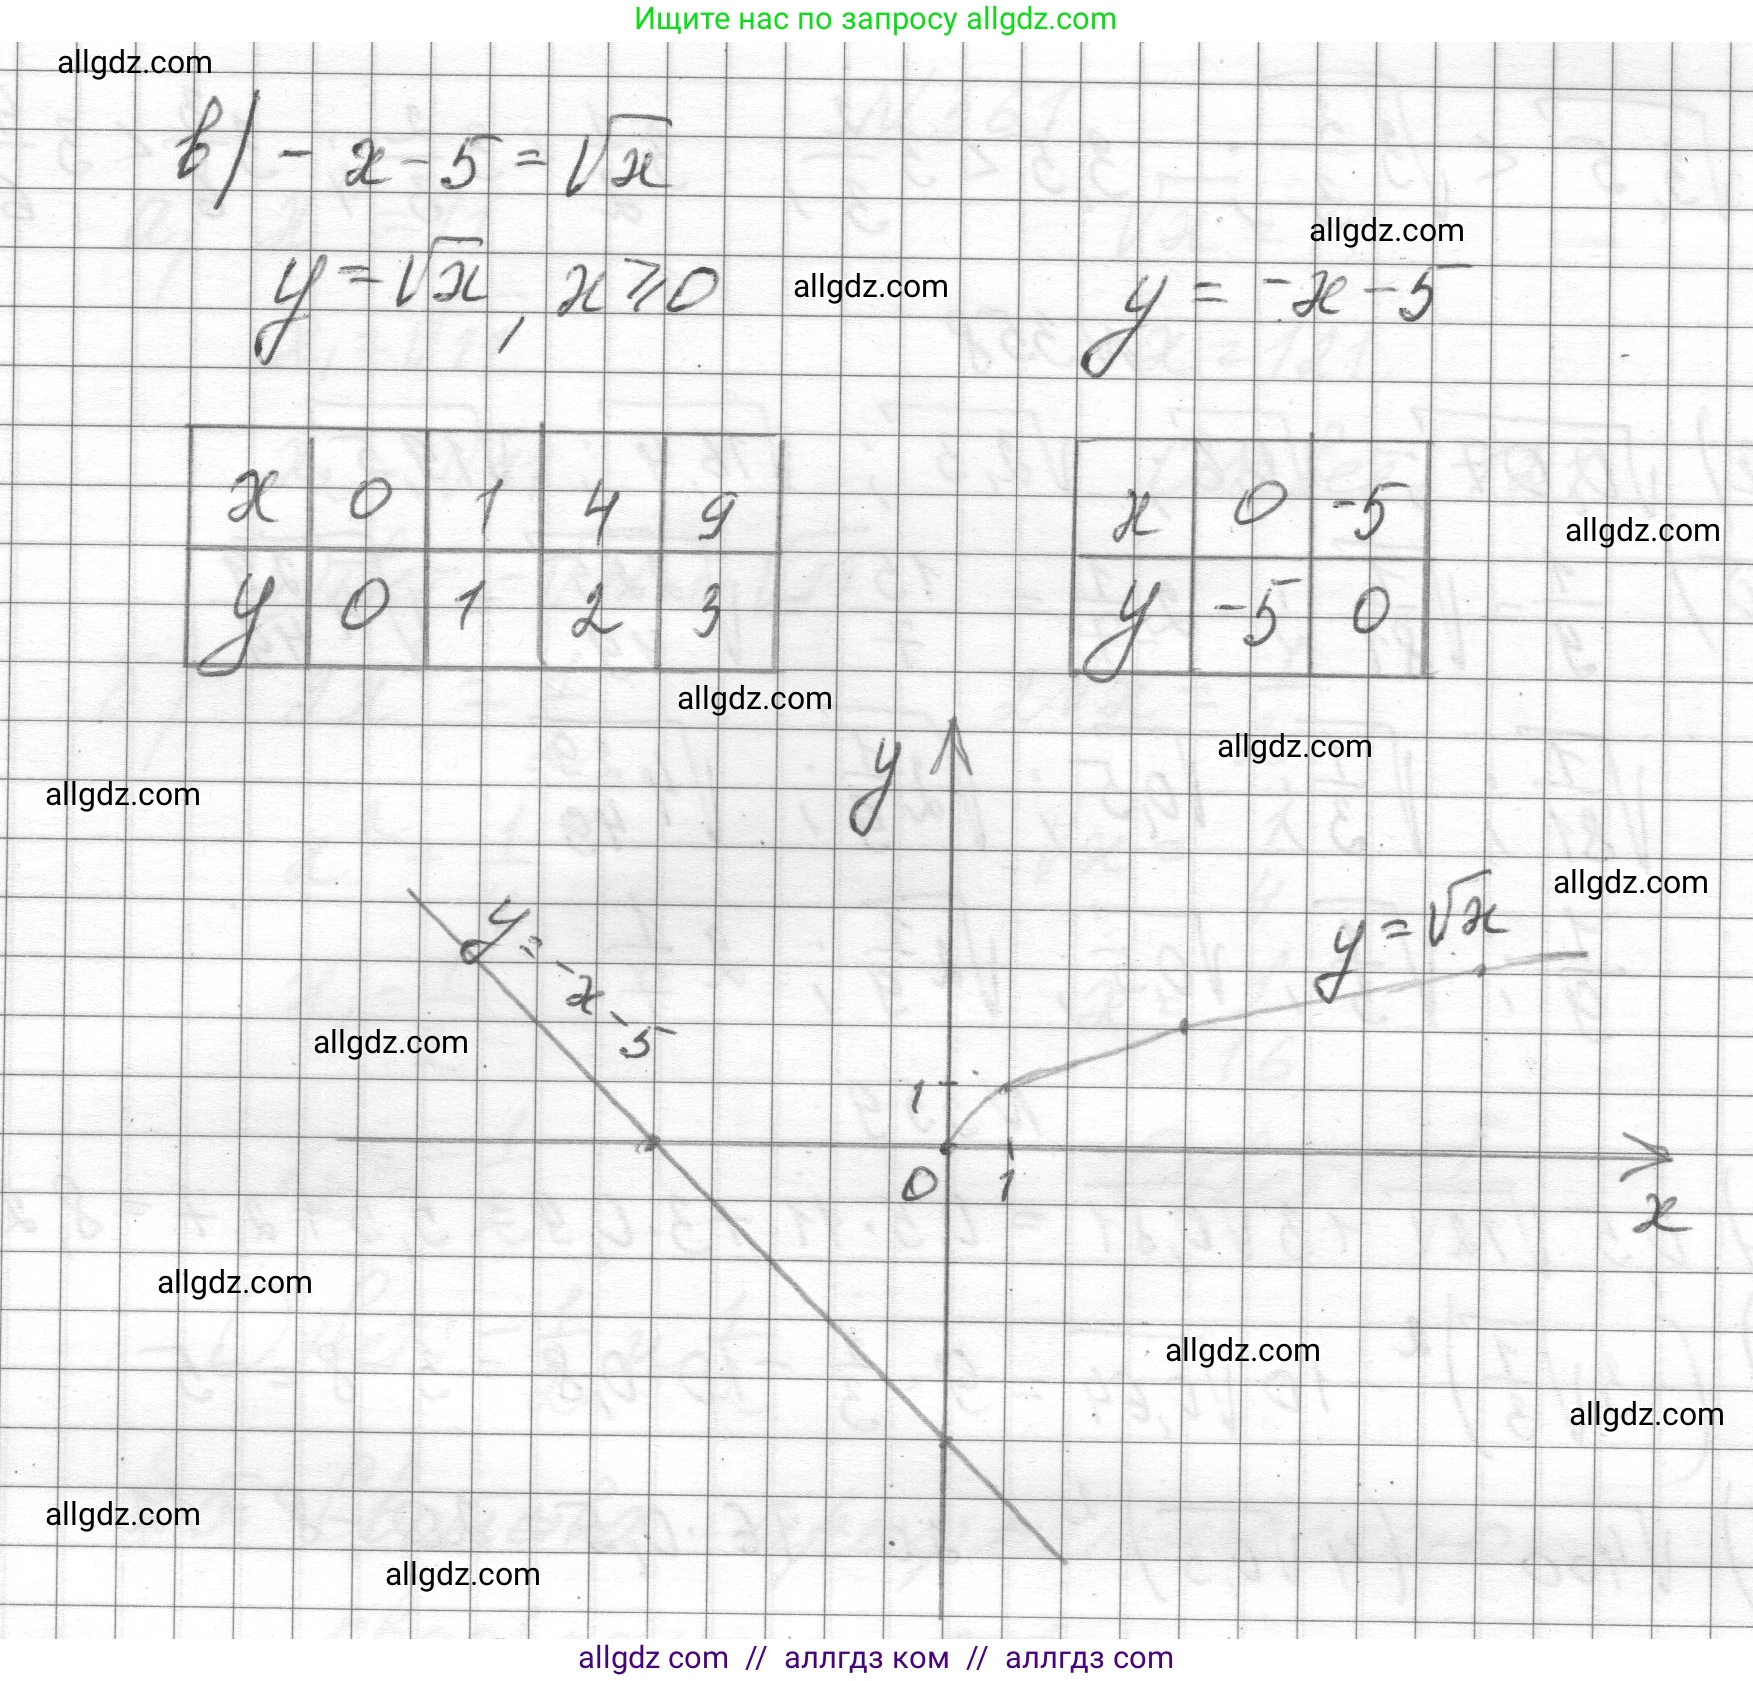 Ищите нас по запросу allgdz.com
allgdz.com
в) - x - 5 = √x
allgdz.com
y = √x, x ≥ 0
allgdz.com
y = -x - 5
x 0 1 4 9
y 0 1 2 3
x 0 -5
y -5 0
allgdz.com
allgdz.com
allgdz.com
allgdz.com
y
allgdz.com
y = √x
y = -x - 5
allgdz.com
1
0 1
x
allgdz.com
allgdz.com
allgdz.com
allgdz.com
allgdz.com
allgdz com // аллгдз ком // аллгдз com